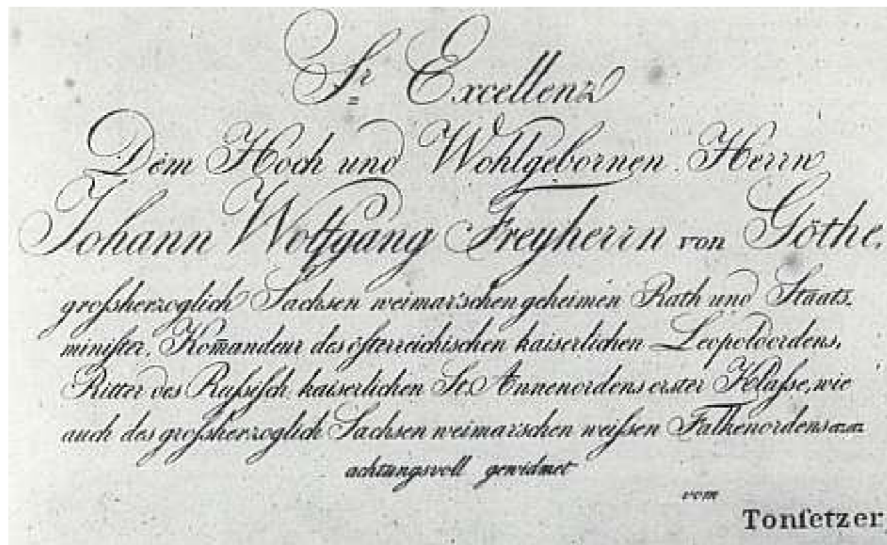 Sr Excellenz
Dem Hoch und Wohlgebornen Herrn
Johann Wolfgang Freyherrn von Göthe,
großherzoglich Sachsen weimar'schen geheimen Rath und Staats-
minister, Kom̅andeur des österreichischen kaiserlichen Leopoldordens,
Ritter des Russisch kaiserlichen St. Annenordens erster Klasse, wie
auch des großherzoglich Sachsen weimar'schen weißen Falkenordens &. &.
achtungsvoll gewidmet
vom
Tonſetzer